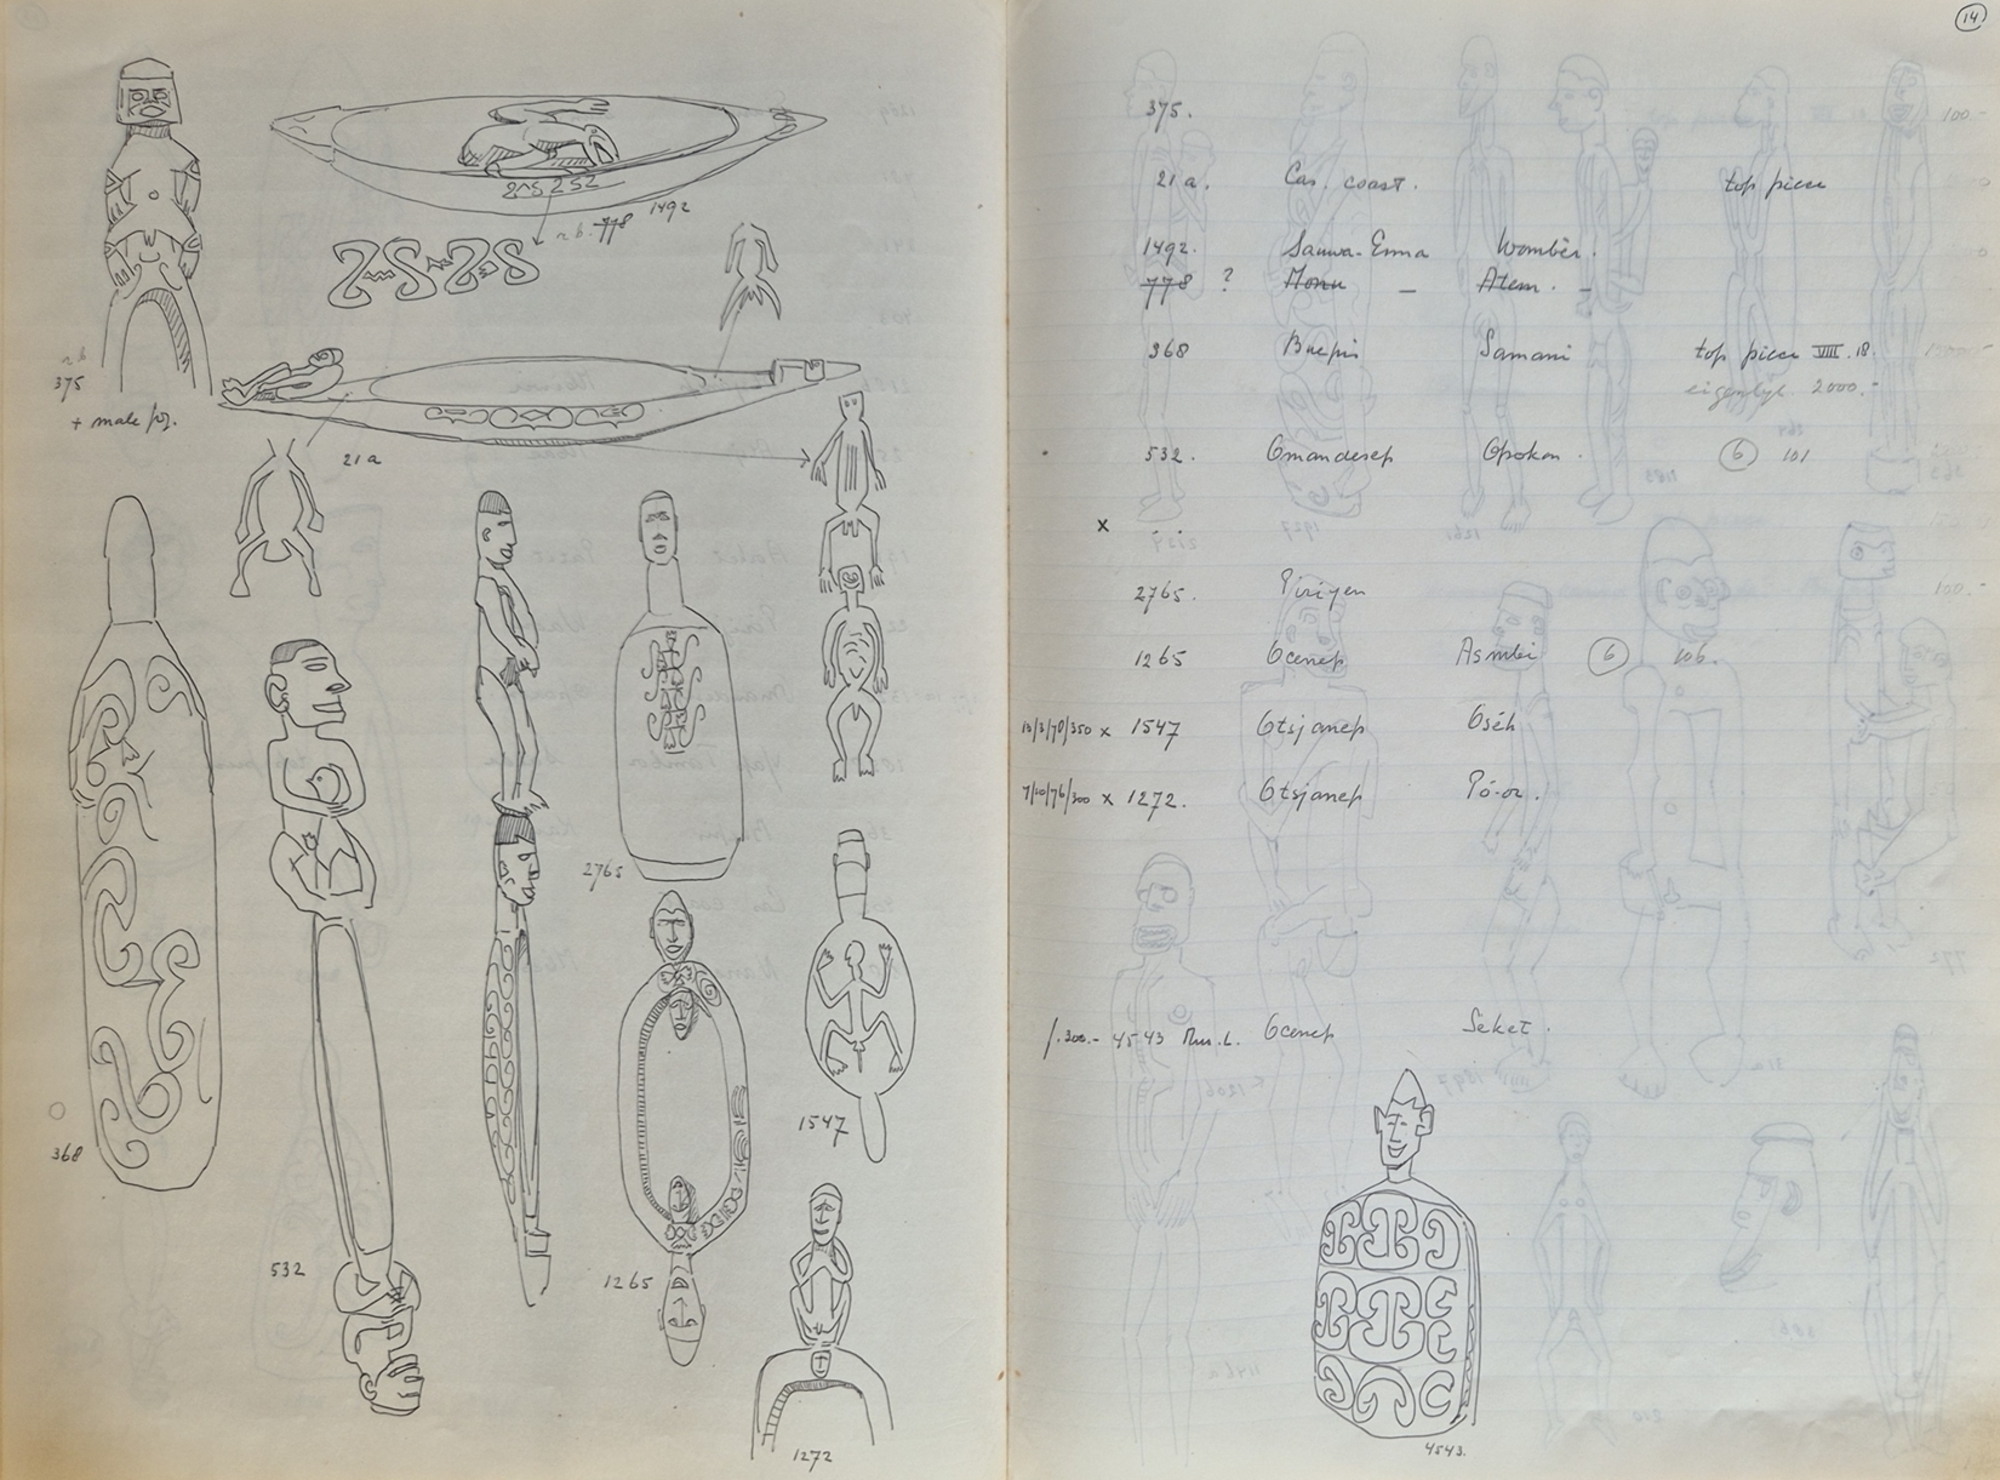 1492
n.b. 778
n.b.
375
+ male fig.
21a
2765
368
1547
532
1265
1272
14
375.
21a. Cas. coast. top piece
1492. Sauwa-Erma Wombêr.
778 ? Monu - Atem. -
368 Buepis Samani top piece VIII. 18.
2000.-
532. Omandesep Opokon. 6 101
x
2765. Piriyen
1265 Ocenep Asmbi 6 106.
13/3/78/350 x 1547 Otsjanep Oséh
7/10/76/300 x 1272. Otsjanep Pó-or.
f. 300.- 4543 Mus. L. Ocenep Seket.
4543.